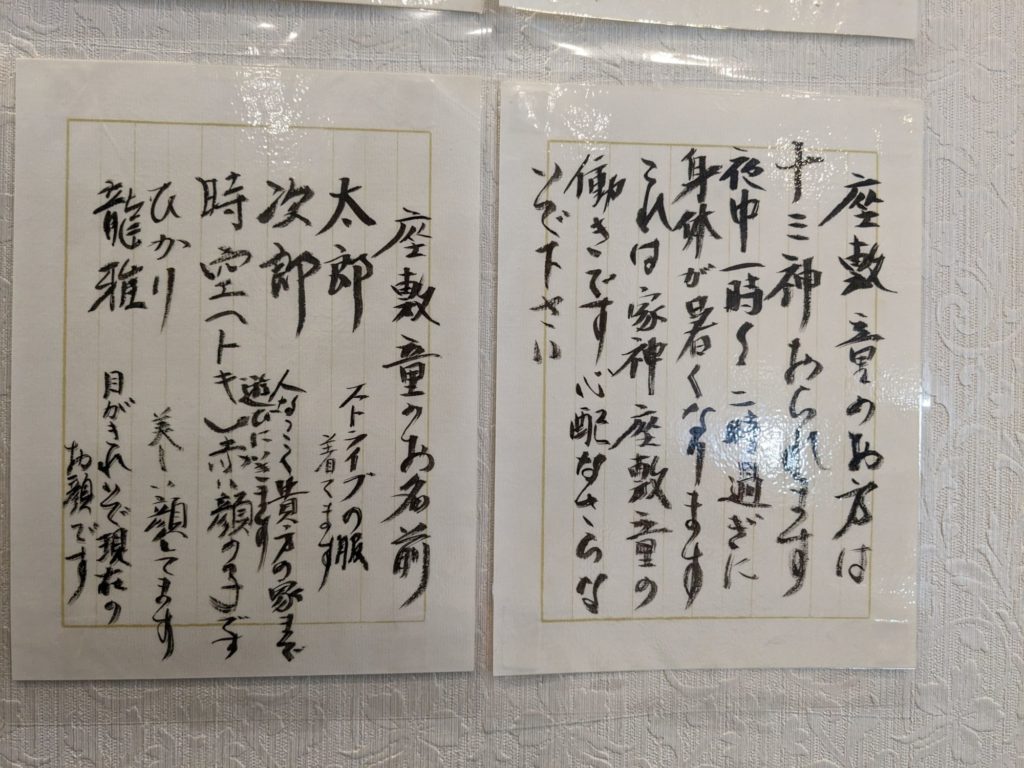 座敷童のお方は
十三神おられます
夜中一時く二時過ぎに
身体が暑くなります
これは家神座敷童の
働きです 心配なさらな
いで下さい
座敷童のお名前
太郎 ストライプの服
着てます
次郎 人なつこく貴方の家まで
遊びに
時空(トキ)赤い顔の子です
ひかり 美しい顔してます
龍雅 目がきれいで現在の
お顔です